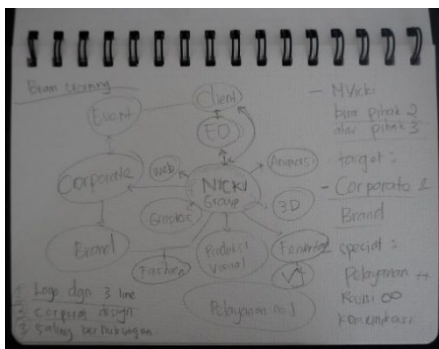 Brain storming
Client
Event
EO
Corporate
Web
NICKI
Group
Animasi
Graphic
3D
Brand
Fashion
Produksi
Visual
Pelayanan no 1
1 Logo dgn 3 line
2 corporat design
3 Saling berhubungan
bisa pihak 2
atau pihak 3
target :
- Corporate &
Brand
special :
Pelayanan ++
komunikasi